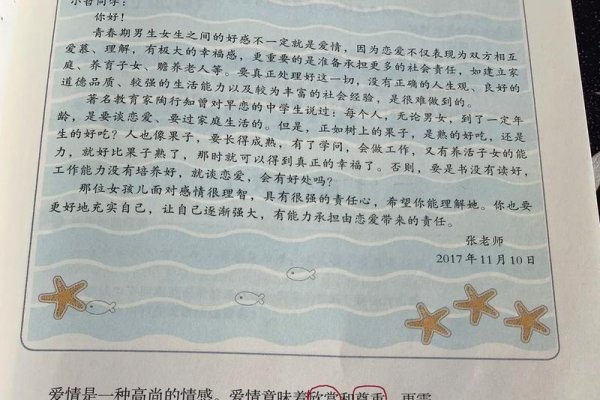 小哲同学：
你好！
青春期男生女生之间的好感不一定就是爱情，因为恋爱不仅表现为双方相互
爱慕、理解，有极大的幸福感，更重要的是准备承担更多的社会责任，如建立家
庭、养育子女、赡养老人等。要真正处理好这一切，没有正确的人生观、良好的
道德品质、较强的生活能力以及较为丰富的社会经验，是很难做到的。
著名教育家陶行知曾对早恋的中学生说过：每个人，无论男女，到了一定年
龄，是要谈恋爱、要过家庭生活的。但是，正如树上的果子，是熟的好吃，还是
生的好吃？人也像果子，要长得成熟，有了学问，会做工作，又有养活子女的能
力，就好比果子熟了，那时就可以得到真正的幸福了。否则，要是书没有读好，
工作能力没有培养好，就谈恋爱，会有好处吗？
那位女孩儿面对感情很理智，具有很强的责任心，希望你能理解她。你也要
更好地充实自己，让自己逐渐强大，有能力承担由恋爱带来的责任。
张老师
2017年11月10日
爱情是一种高尚的情感。爱情意味着欣赏和尊重，更需